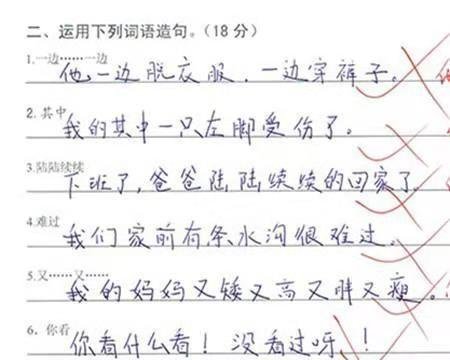 二、运用下列词语造句。(18分)
1.一边……一边
他一边脱衣服,一边穿裤子。
2.其中
我的其中一只左脚受伤了。
3.陆陆续续
下班了,爸爸陆陆续续的回家了
4.难过
我们家前有条水沟很难过。
5.又……又……
我的妈妈又矮又高又胖又瘦。
6.你看
你看什么看!没看过呀!